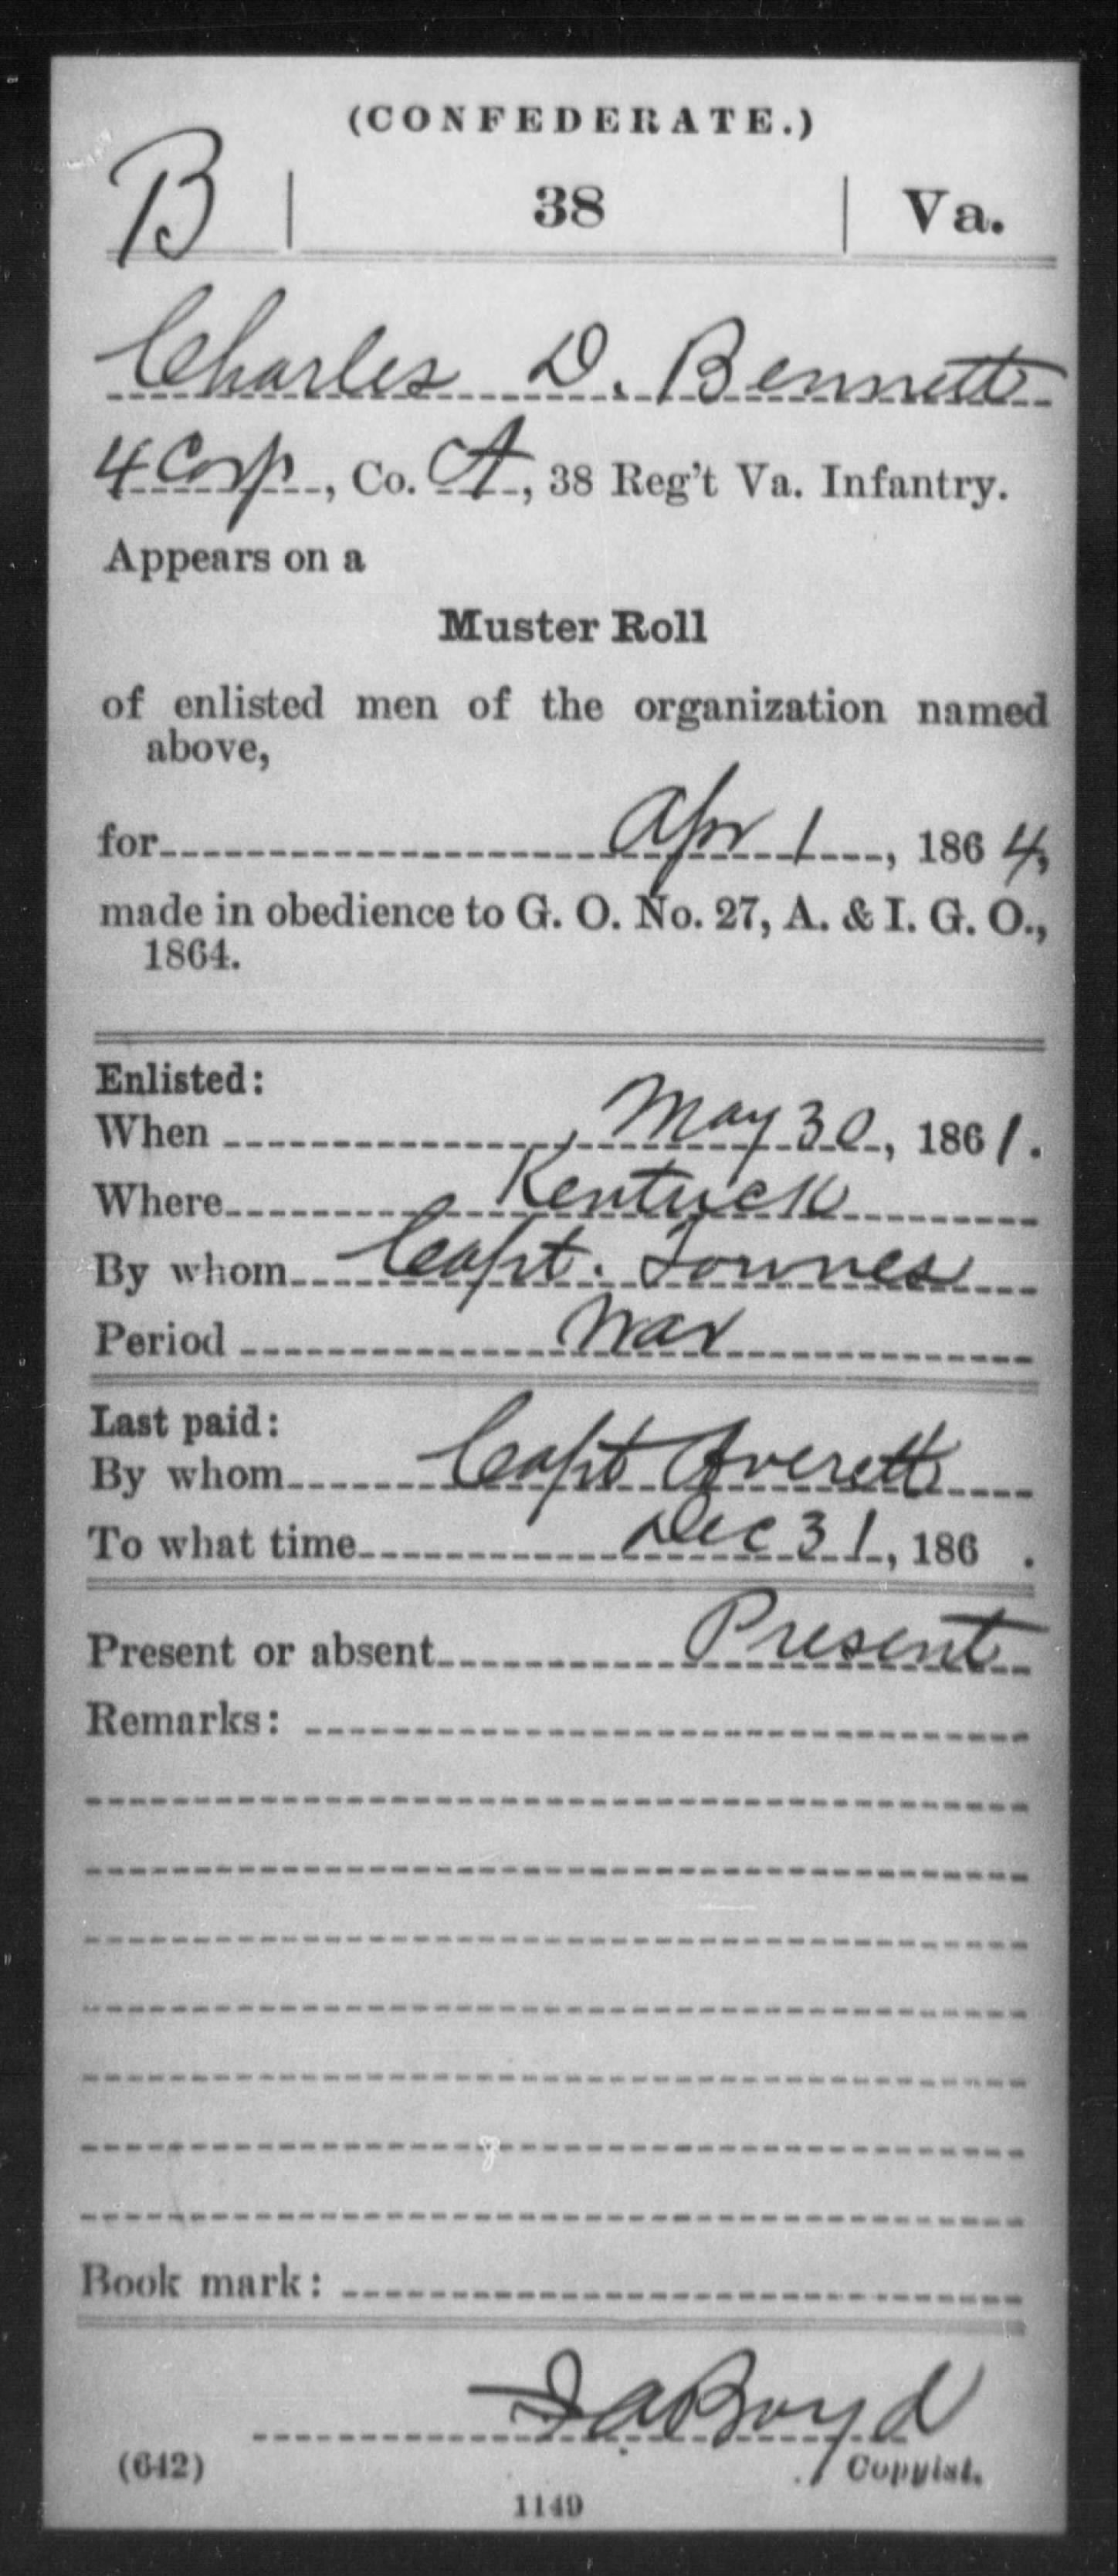 (CONFEDERATE.)
B | 38 | Va.
Charles D. Bennett
4 Corp, Co. A, 38 Reg't Va. Infantry.
Appears on a
Muster Roll
of enlisted men of the organization named
above,
for Apr 1, 1864,
made in obedience to G. O. No. 27, A. & I. G. O.,
1864.
Enlisted:
When May 30, 1861.
Where Kentuck
By whom Capt. Townes
Period War
Last paid:
By whom Capt Averett
To what time Dec 31, 186 .
Present or absent Present
Remarks:
Book mark:
Boyd
(642) Copyist.
1149